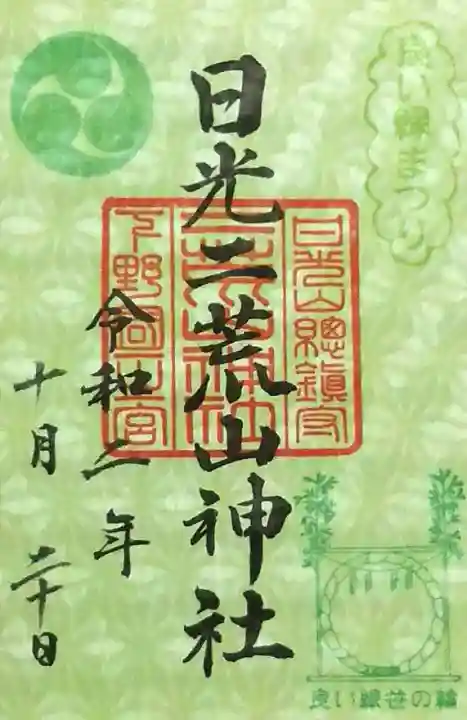 良い縁まつり
日光二荒山神社
日光山總鎮守
下野國一之宮
令和二年
十月二十日
良い縁笹の輪